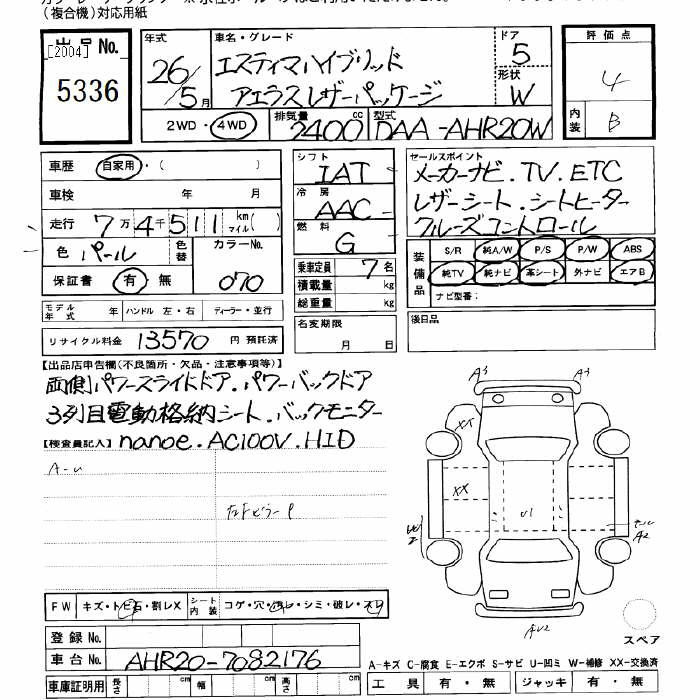 (複合機)対応用紙
出品No.
[2004]
5336
年式
26年/5月
車名・グレード
エスティマハイブリッド
アエラスレザーパッケージ
ドア
5
形状
W
2WD・4WD
排気量
2400cc
型式
DAA-AHR20W
評価点
4
内装
B
車歴
自家用・( )
車検 年 月
走行 7万4千511 km マイル( )
色 パール
色替
カラーNo.
070
保証書 有・無
モデル年式
ハンドル 左・右
ディーラー・並行
リサイクル料金 13570 円 預託済
シフト
IAT
冷房
AAC
燃料
G
乗車定員 7名
積載量 kg
総重量 kg
名変期限
月 日
セールスポイント
メーカーナビ.TV.ETC
レザーシート.シートヒーター
クルーズコントロール
装備品
S/R 純A/W P/S P/W ABS
純TV 純ナビ 革シート 外ナビ エアB
ナビ型番:
後日品
【出品店申告欄(不良箇所・欠品・注意事項等)】
両側パワースライドドア.パワーバックドア
3列目電動格納シート.バックモニター
【検査員記入】
nanoe.AC100V.HID
A-U
A3
A3
XX
XX
U1
W2
A2
AU2
スペア
FW
キズ・トビ石・割レX
シート内装
コゲ・穴・汚レ・シミ・破レ・スレ
登録No.
車台No.
AHR20-7082176
A-キズ C-腐食 E-エクボ S-サビ U-凹ミ W-補修 XX-交換済
車庫証明用
長さ cm
幅 cm
高さ cm
工具 有・無
ジャッキ 有・無